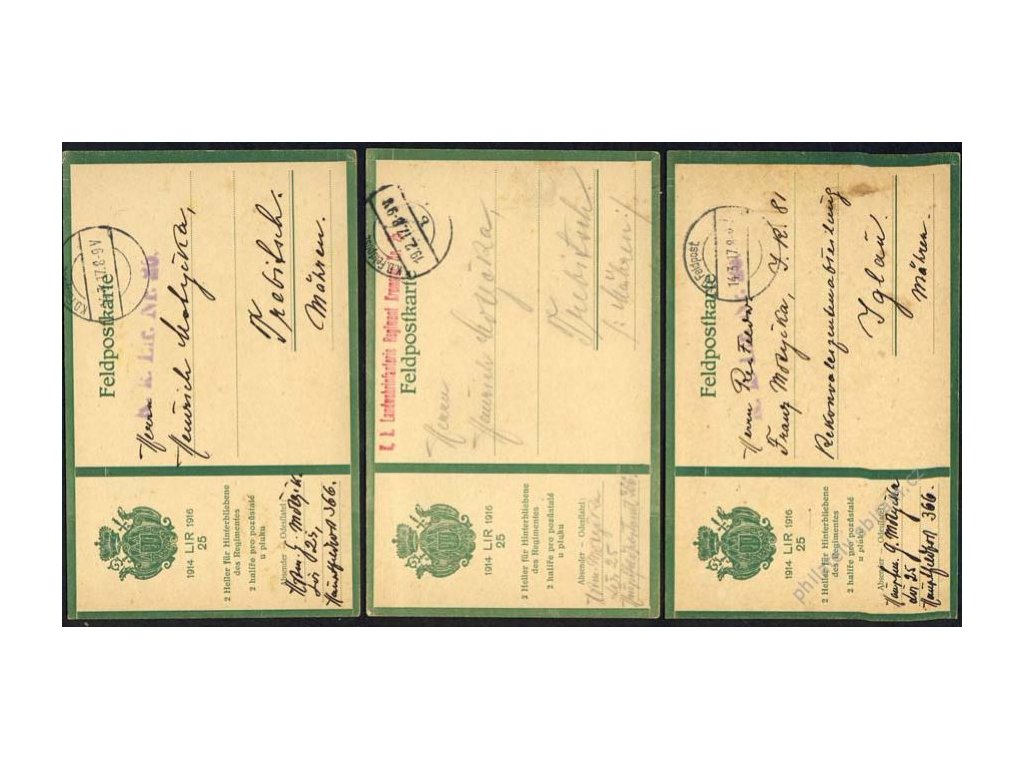 Feldpostkarte
Herrn
Heinrich Motyčka,
Trebitsch.
Mähren.
1914 LIR 1916
25
2 Heller für Hinterbliebene
des Regimentes
2 halíře pro pozůstalé
u pluku
Absender – Odesílatel:
366.
K. k. Landsturminfanterie Regiment
19.2.17.8-9V
Feldpostkarte
Herrn
Heinrich Motyčka,
Trebitsch.
Mähren
1914 LIR 1916
25
2 Heller für Hinterbliebene
des Regimentes
2 halíře pro pozůstalé
u pluku
Absender – Odesílatel:
Feldpost
14.3.17.8
Feldpostkarte
Herrn
Franz Motyčka, I. R. 81
Rekonvaleszentenabteilung
Iglau.
Mähren.
1914 LIR 1916
25
2 Heller für Hinterbliebene
des Regimentes
2 halíře pro pozůstalé
u pluku
Absender – Odesílatel:
G. Motyčka
LIR 25
366.